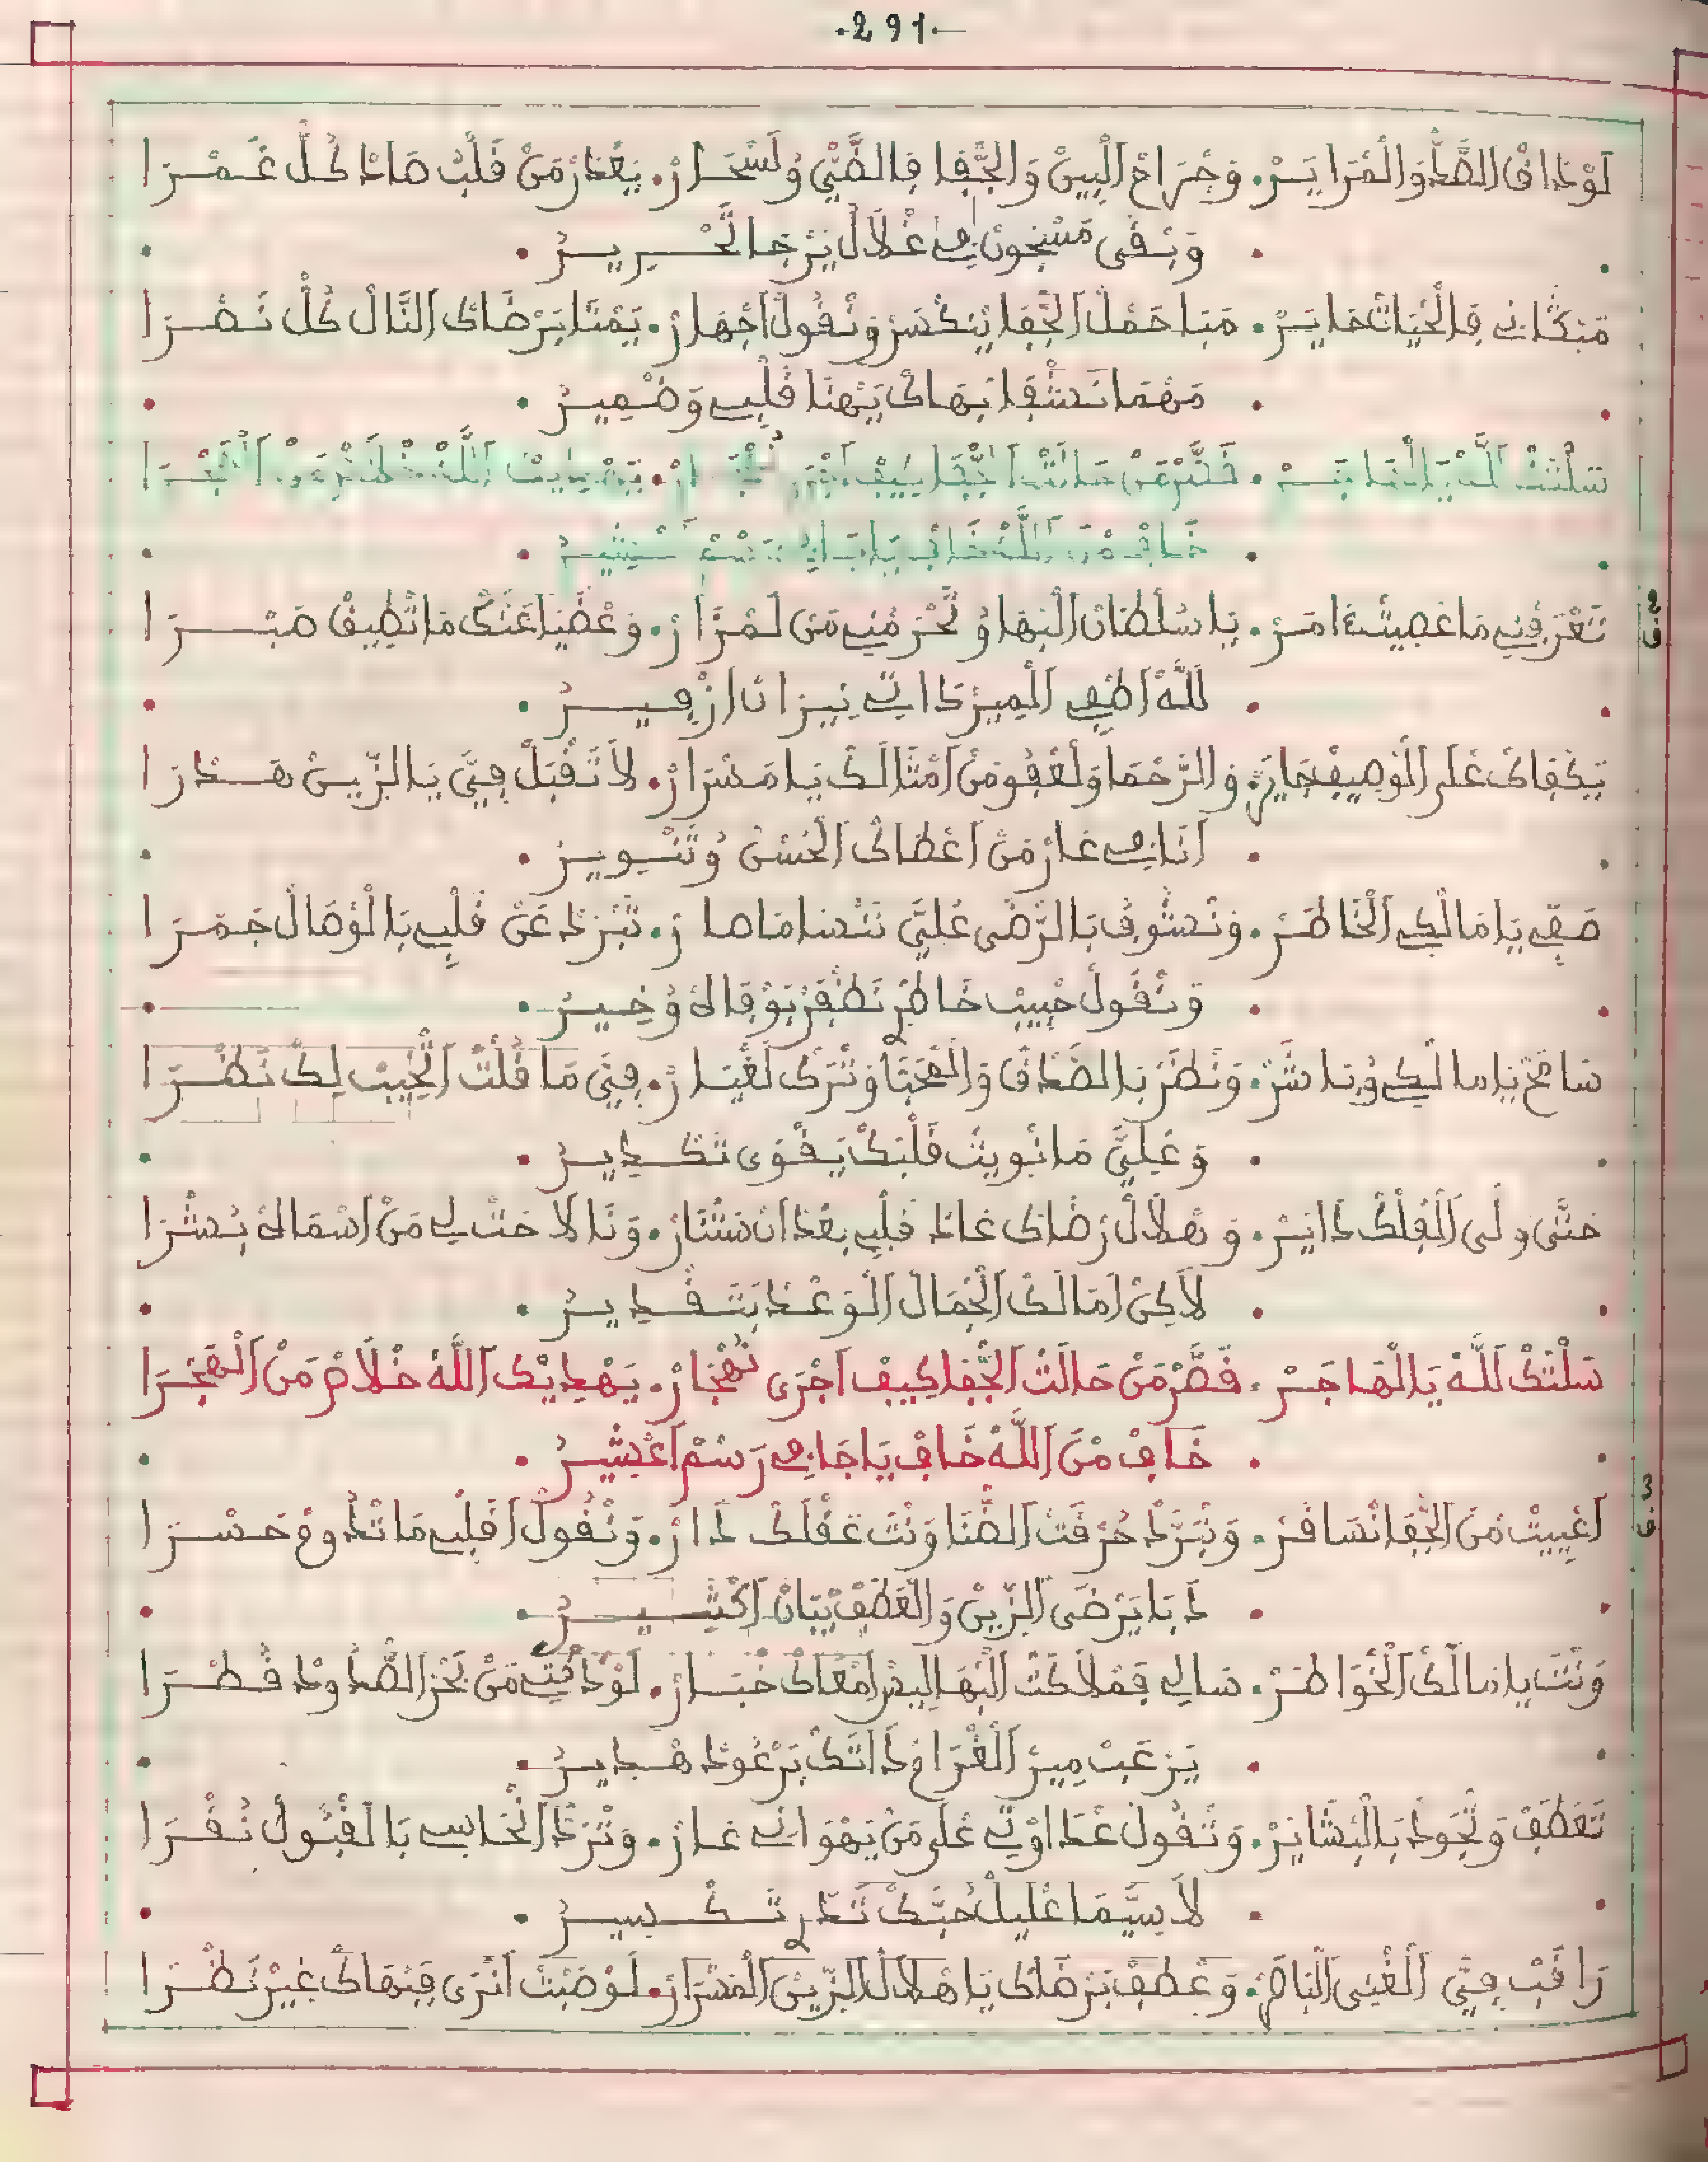 ·291·
لَوْ ذَاقْ الصَّدْ وَالْمْرَايَرْ. وَجْرَاحْ الْبِينْ وَالجّْفَا فَالضَّيّْ وُلَسْحَارْ. يَعْذَرْ مَنْ قَلْبُ صَادْ كُلّْ غَمْرَا
. وَبْقَى مَسْجُون فِي غْلَالْ يَرْجَا تَحْرِيرُ .
مَبْكَانِي فَالْحْيَاتْ حَايَرْ. مَبَا حَمْلْ الجّْفَا يْنَكْسَرْ وَنْقُولْ اجْهَارْ. يَمْتَا بَرْضَاكْ النَّالْ كُلّْ نَصْرَا
. مَهْمَا نَسْقَا بْهَاكْ يَهْنَا قَلْبِي وَضْمِيرُ .
سَلْتَكْ لَلَّهْ يَا الْهَاجَرْ. قَصَّرْ مَنْ حَالَتْ الجّْفَا كِيفْ اجْرَى تَهْجَارْ. يَهْدِيكْ اللَّهْ خْلَاصْ مَنْ الْهَجْرَا
. خَافْ مْنَ اللَّهْ خَافْ يَا جَافِي رَسْمْ اعْشِيرُ .
2 ق
تَعْرَفْنِي مَا عْصِيتْ ءَامَرْ. يَا سُلْطَانْ الْبْهَا وُتَحْرَمْنِي مَنْ لَمْزَارْ. وَعْضَيَا عَنَّكْ مَا تْطِيقْ صَبْرَا
. لَلَّهْ اطْفِي الْمِيرْ ذَاتِي نِيرَانْ ازْفِيرُ .
يَكْفَاكْ عْلَى الْوْصِيفْ جَايَرْ. وَالرَّحْمَا وَلْعْفُو مَنْ امْثَالَكْ يَا مَسْرَارْ. لَا تَقْبَلْ فِيَّ يَا الزِّينْ هَدْرَا
. اَنَا فِي عَارْ مَنْ اعْطَاكْ الْحُسْنْ وُتَنْوِيرُ .
صَفِّي يَا مَالْكِي الْخَاطَرْ. وَنْشُوفْ بَالرّْضَى عْلِيَّ نَنْسَا مَا صَارْ. تْبَرَّدْ عَنْ قَلْبِي بَالْوْصَالْ جَمْرَا
. وَنْقُولْ حْبِيبْ خَاطْرِي نَظْفَرْ بَوْفَالُ وُخِيرُ .
سَامَحْ يَا مَالْكِي وُبَاشَرْ. وَنْظَرْ بَالصّْدَقْ وَالْمْحَبَّا وَتْرَكْ لَغْيَارْ. فِيَّ مَا قُلْتْ الْحْبِيبْ لِكْ نَظْرَا
. وَعْلِيَّ مَا نْوِيتْ قَلْبَكْ يَقْوَى تَكْدِيرُ .
حَتَّى وَلَّى الْفْلَكْ دَايَرْ. وَهْلَالْ رْضَاكْ غَادْ قَلْبِي بَعْدْ انْ نَسْتَارْ. وَنَا لَاحَتْ لِي مَنْ اسْمَاكْ بُشْرَا
. لَاكِنْ اَمَالَكْ الْجْمَالْ الْوَعْدْ بَتَقْدِيرُ .
سَلْتَكْ لَلَّهْ يَا الْهَاجَرْ. قَصَّرْ مَنْ حَالَتْ الجّْفَا كِيفْ اجْرَى تَهْجَارْ. يَهْدِيكْ اللَّهْ خْلَاصْ مَنْ الْهَجْرَا
. خَافْ مْنَ اللَّهْ خَافْ يَا جَافِي رَسْمْ اعْشِيرُ .
3 ق
اَعْيِيتْ مْنَ الجّْفَا نْسَافَرْ. وَنْبَرَّدْ حُرْقَتْ الضّْنَا وَنْتَ عَقْلَكْ دَارْ. وَنْقُولْ اقَلْبِي مَا تْدُوقْ حَسْرَا
. دَابَا يَرْضَى الزِّينْ وَالْعَطْفْ يْبَانْ اكْثِيرُ .
وَنْتَ يَا مَالَكْ الْخْوَاطَرْ. سَالِي فَمْلَاكَتْ الْبْهَا لِيسْ امْعَاكْ خْبَارْ. لَوْ دُقْتِي مَنْ بَحْرْ الصّْدُودْ قَطْرَا
. يَزْعَبْ مِيرْ الْغْرَامْ ذَاتَكْ بَرْعُودْ هْدِيرُ .
تَعْطَفْ وَتْجُودْ بَالْبْشَايَرْ. وَتْقُولْ عْدَاوْتِي عْلَى مَنْ يَهْوَانِي عَارْ. وَتْرَدّْ انْحَاسِي بَالْقْبُولْ نُقْرَا
. لَاسِيَّمَا عْلِيلْ حُبَّكْ تَدْرِي تَكْسِيرُ .
رَاقَبْ فِيَّ الْغْنَى النَّاصَرْ. وَعْطَفْ بَرْضَاكْ يَا هْلَالْ الزِّينْ الْمَسْرَارْ. لَوْ صَبْتْ انْرَى فَبْهَاكْ غِيرْ نَظْرَا